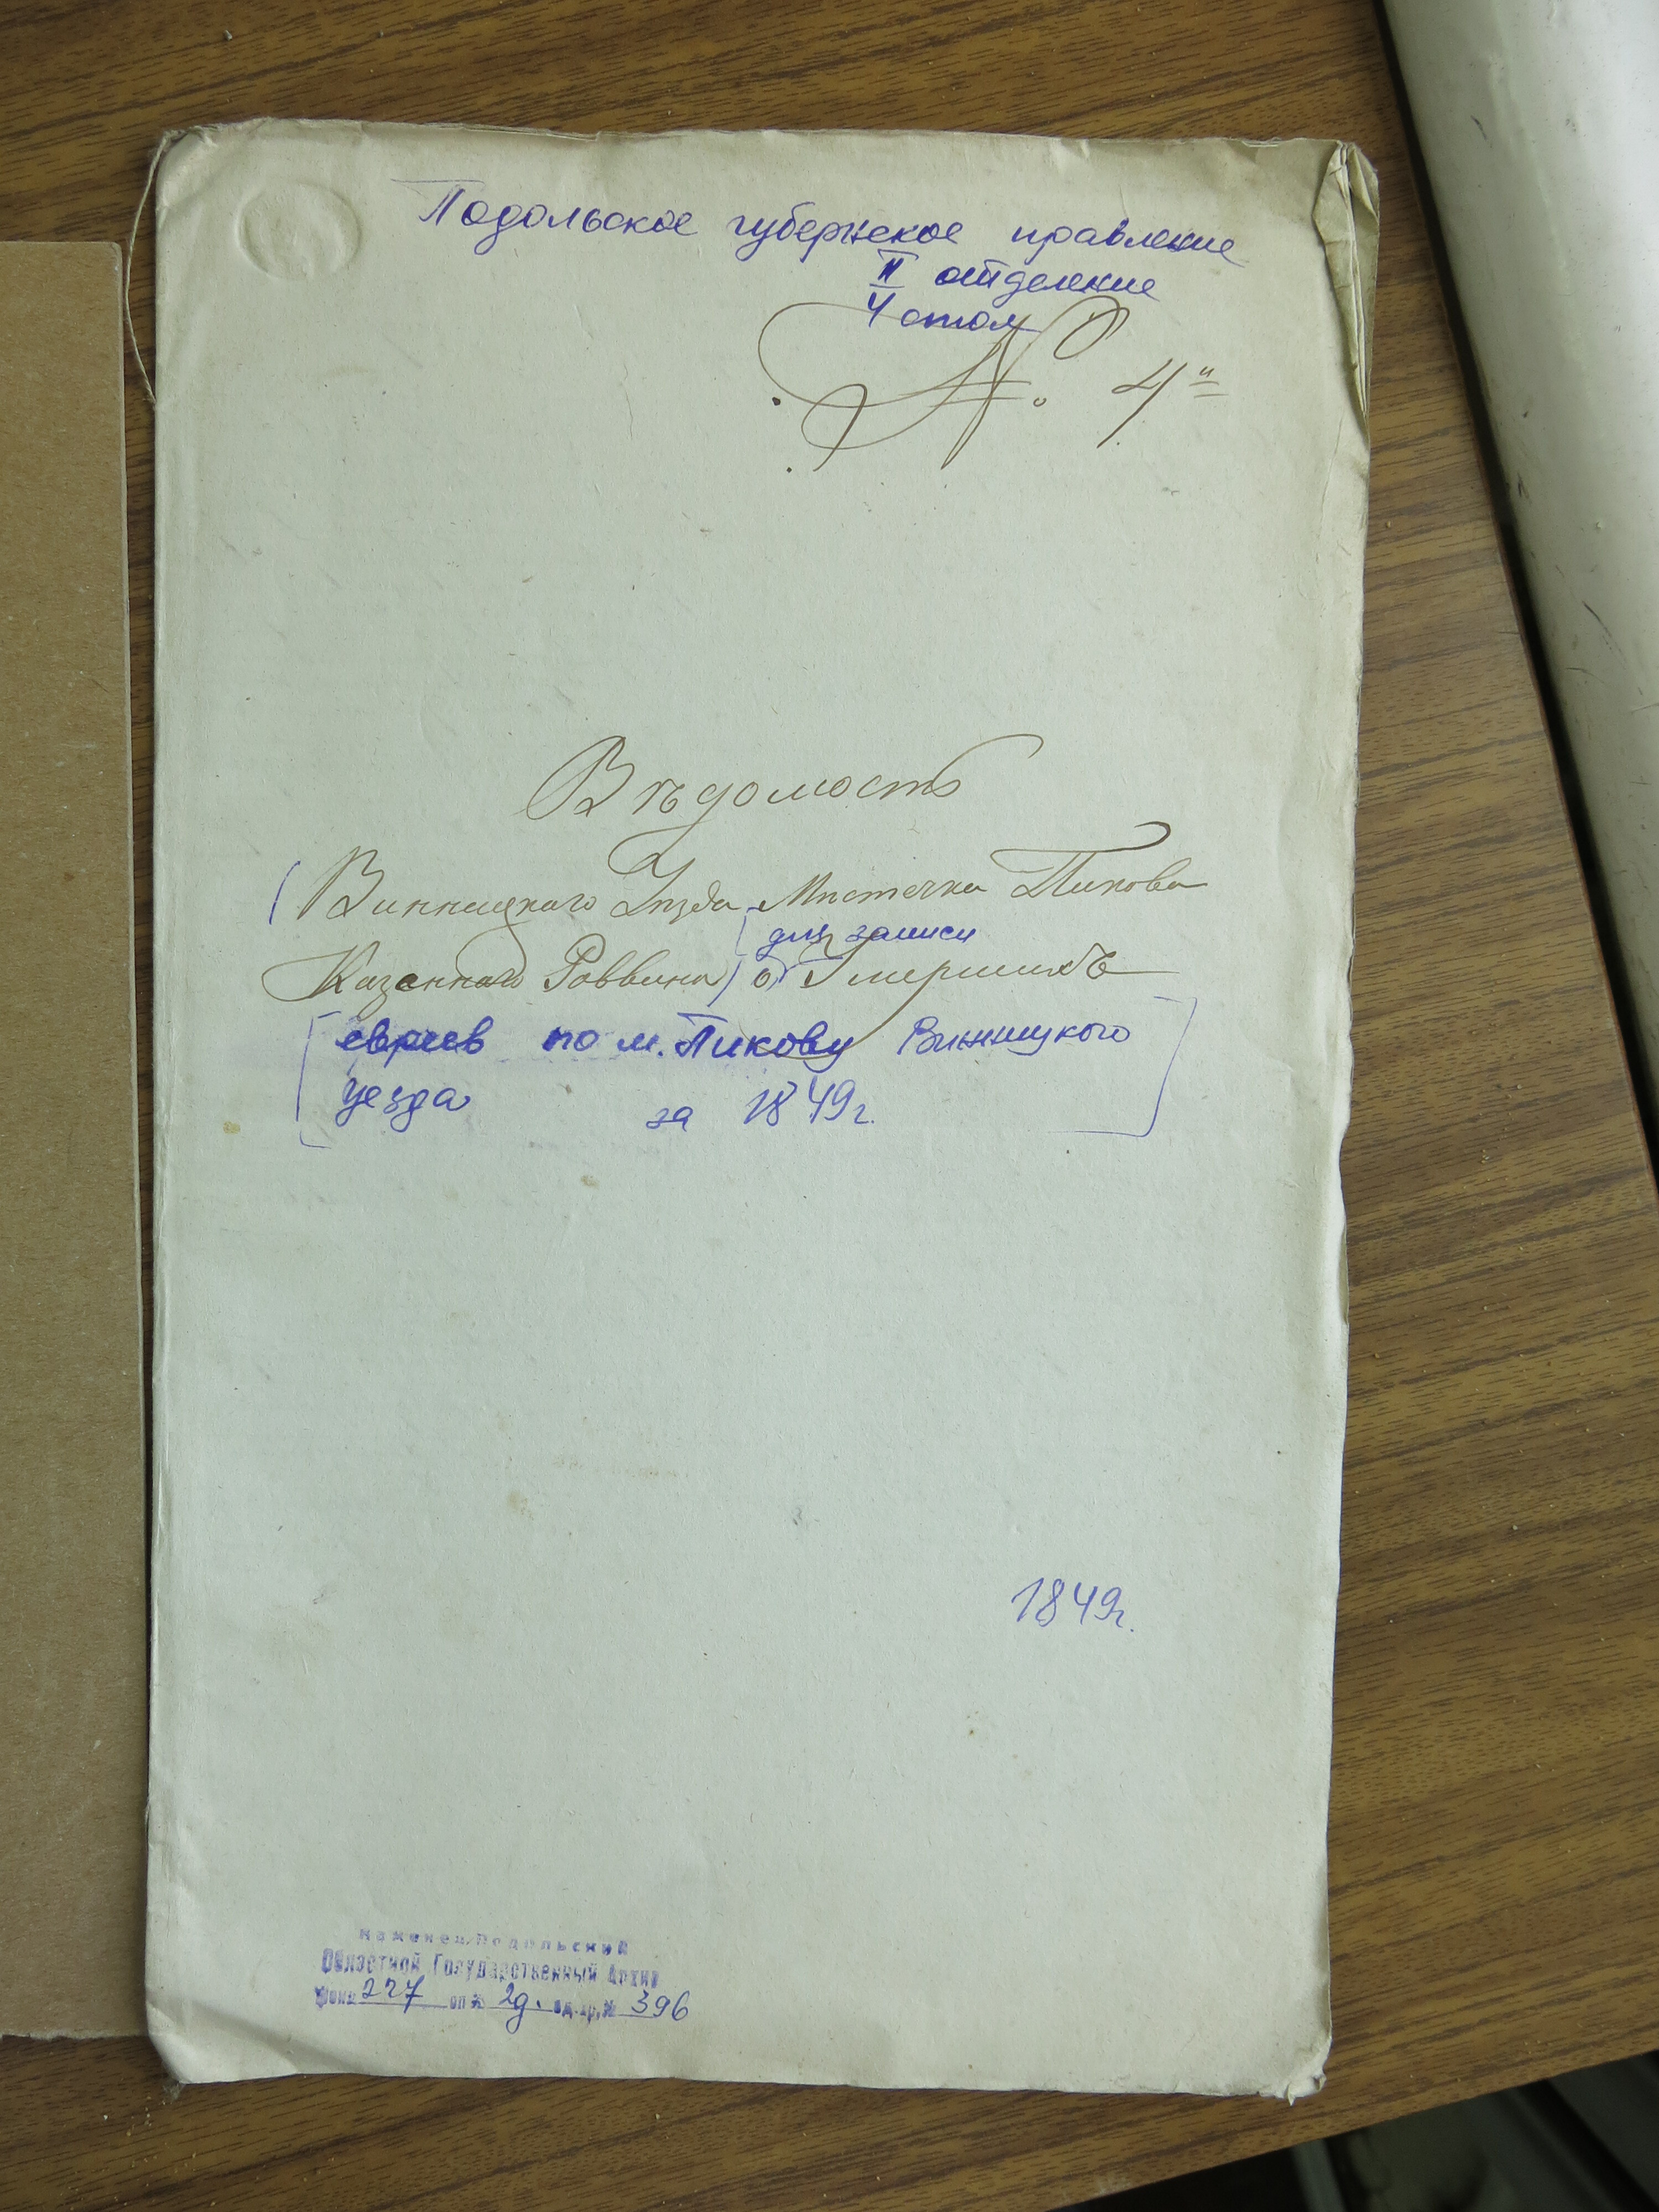 Подольское губернское правление
II отделение
4 стол
№. 4"
Вѣдомость
(Винницкого Уѣзда Мѣстечка Пикова
для записи
Казенного Раввина) о Умершихъ
евреев по м. Пикову Винницкого
уезда за 1849г.
1849г.
Каменец-Подольский
Областной Государственный Архив
Фонд 227 оп № 2д. ед.хр.№ 396